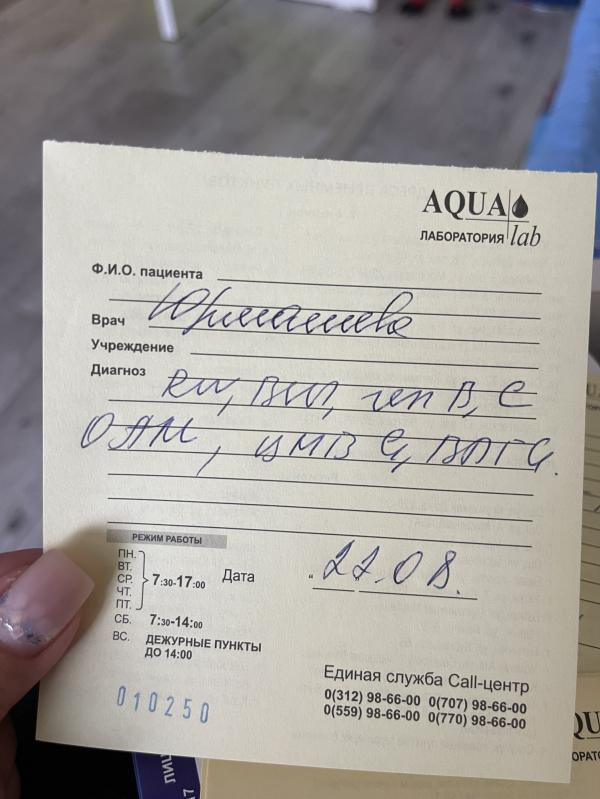 AQUA
ЛАБОРАТОРИЯ lab
Ф.И.О. пациента
Врач Юрмашева
Учреждение
Диагноз RW, ВИЧ, геп B, C
ОАМ, ЦМВ G, ВПГ G.
РЕЖИМ РАБОТЫ
ПН.
ВТ.
СР. 7:30-17:00 Дата " 22.08.
ЧТ.
ПТ.
СБ. 7:30-14:00
ВС. ДЕЖУРНЫЕ ПУНКТЫ
ДО 14:00
Единая служба Call-центр
0(312) 98-66-00 0(707) 98-66-00
0(559) 98-66-00 0(770) 98-66-00
010250